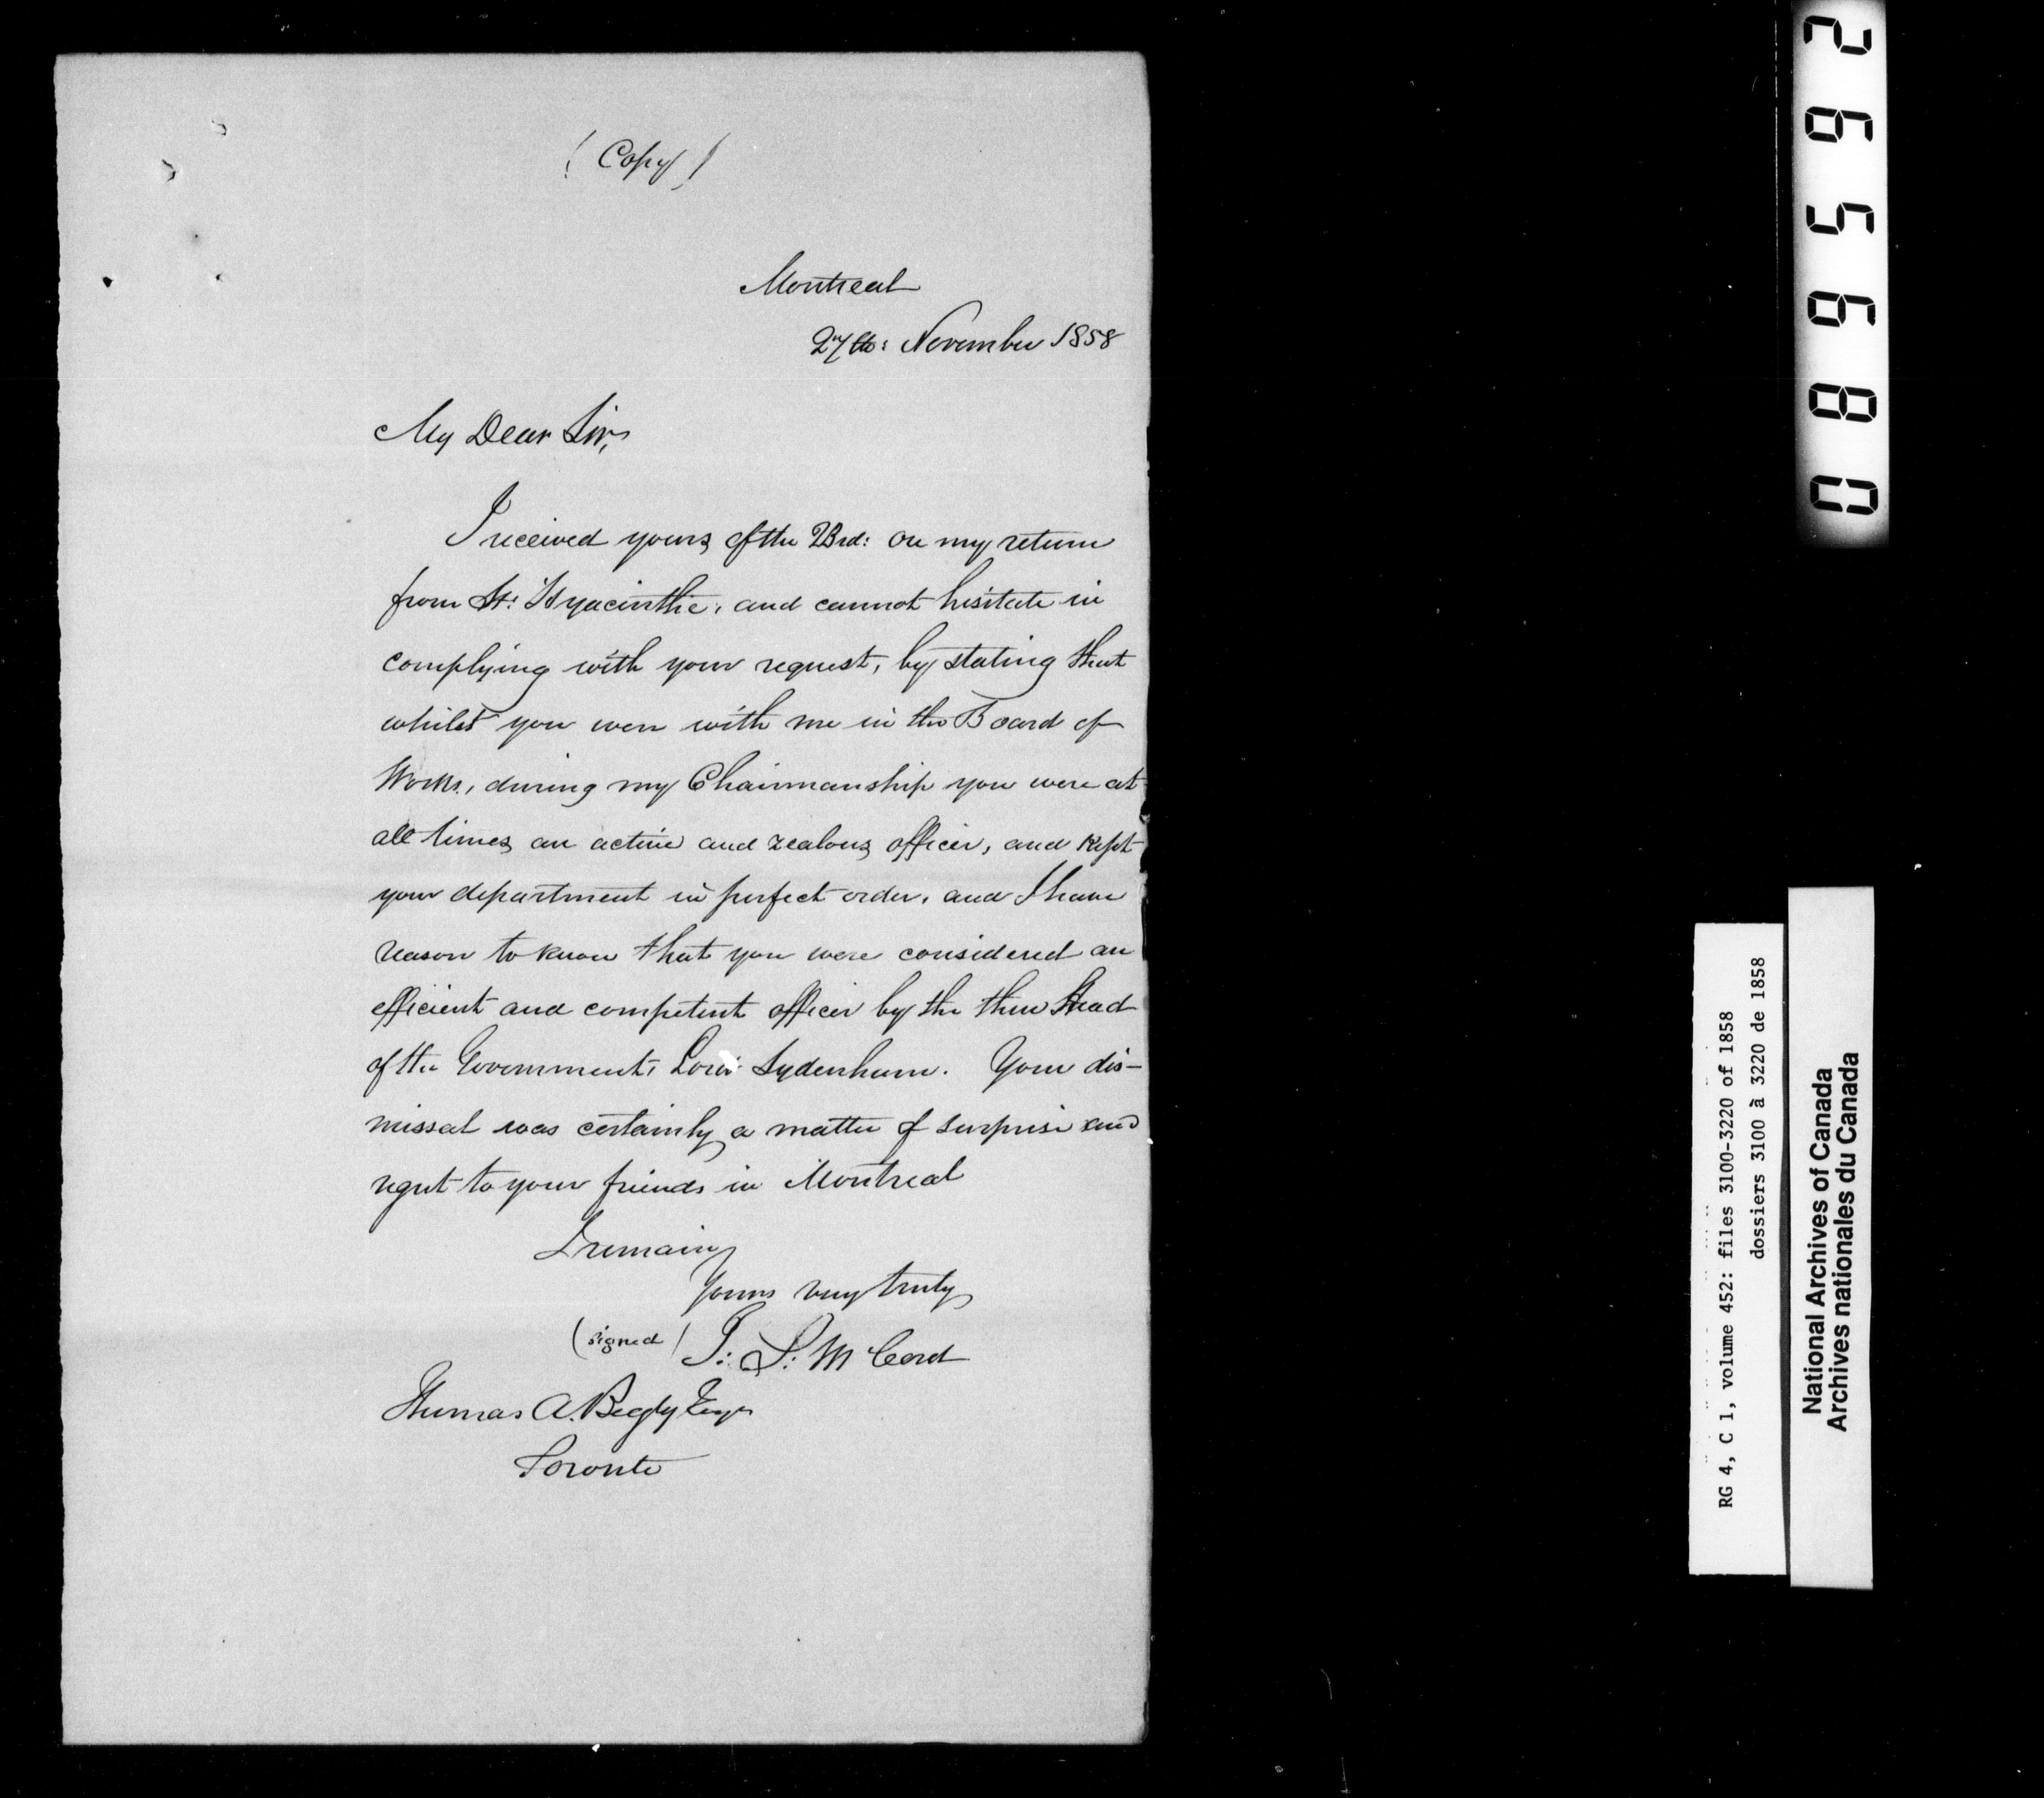 ( Copy )
Montreal
27th: November 1858
My Dear Sir,
I received yours of the 23rd: on my return
from St: Hyacinthe, and cannot hesitate in
complying with your request, by stating that
whilst you were with me in the Board of
Works, during my Chairmanship you were at
all times an active and zealous officer, and kept
your department in perfect order, and I have
reason to know that you were considered an
efficient and competent officer by the then Head
of the Government, Lord Sydenham. Your dis-
missal was certainly a matter of surprise and
regret to your friends in Montreal
I remain,
Yours very truly,
(signed) J: S: McCord
Thomas A. Begly Esqr
Toronto
265680
RG 4, C 1, volume 452: files 3100-3220 of 1858
dossiers 3100 à 3220 de 1858
National Archives of Canada
Archives nationales du Canada